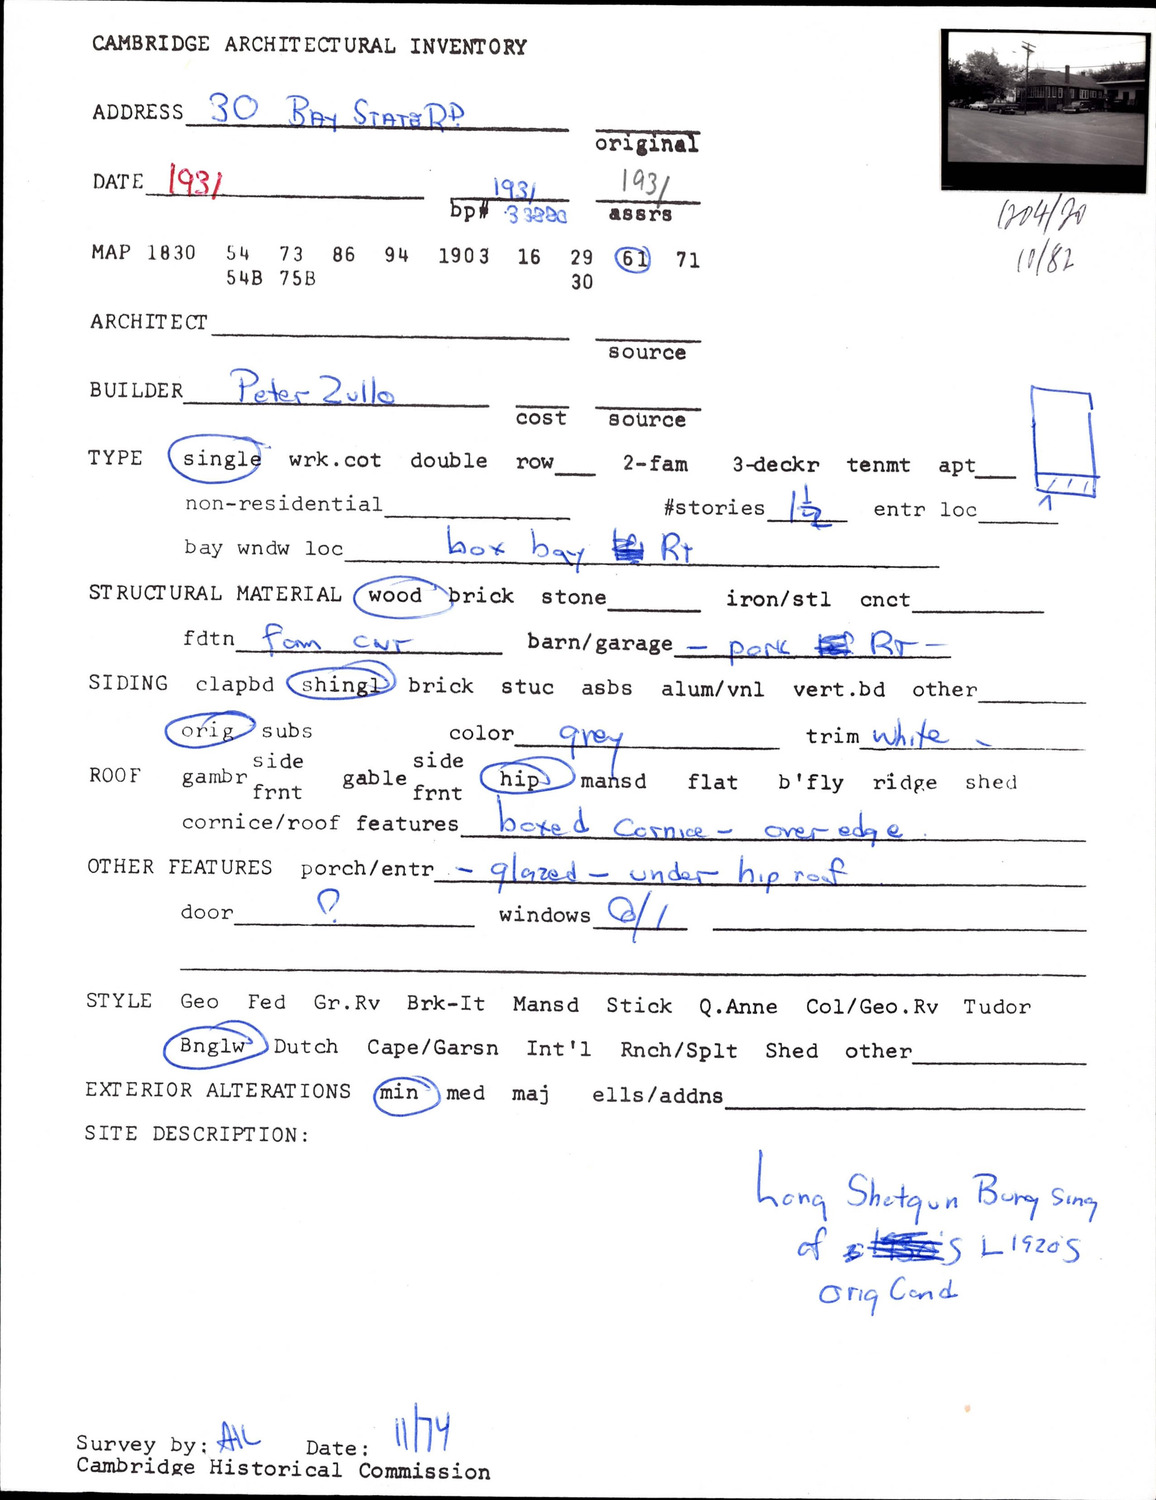 CAMBRIDGE ARCHITECTURAL INVENTORY
ADDRESS 30 BAY STATE RD.
original
DATE 1931 1931 1931
bp# 33880 assrs
1204/20
10/82
MAP 1830 54 73 86 94 1903 16 29 61 71
54B 75B 30
ARCHITECT
source
BUILDER Peter Zullo
cost source
TYPE single wrk.cot double row 2-fam 3-deckr tenmt apt
non-residential #stories 1 1/2 entr loc
bay wndw loc box bay Rt
STRUCTURAL MATERIAL wood brick stone iron/stl cnct
fdtn barn/garage - Rt -
SIDING clapbd shingl brick stuc asbs alum/vnl vert.bd other
orig subs color grey trim white
side side
ROOF gambr gable hip mansd flat b'fly ridge shed
frnt frnt
cornice/roof features boxed Cornice - over edge
OTHER FEATURES porch/entr - glazed - under hip roof
door ? windows /1
STYLE Geo Fed Gr.Rv Brk-It Mansd Stick Q.Anne Col/Geo.Rv Tudor
Bnglw Dutch Cape/Garsn Int'l Rnch/Splt Shed other
EXTERIOR ALTERATIONS min med maj ells/addns
SITE DESCRIPTION:
Long Shotgun Bung sing
of L1920's
orig Cond
Survey by: Date: 11/74
Cambridge Historical Commission